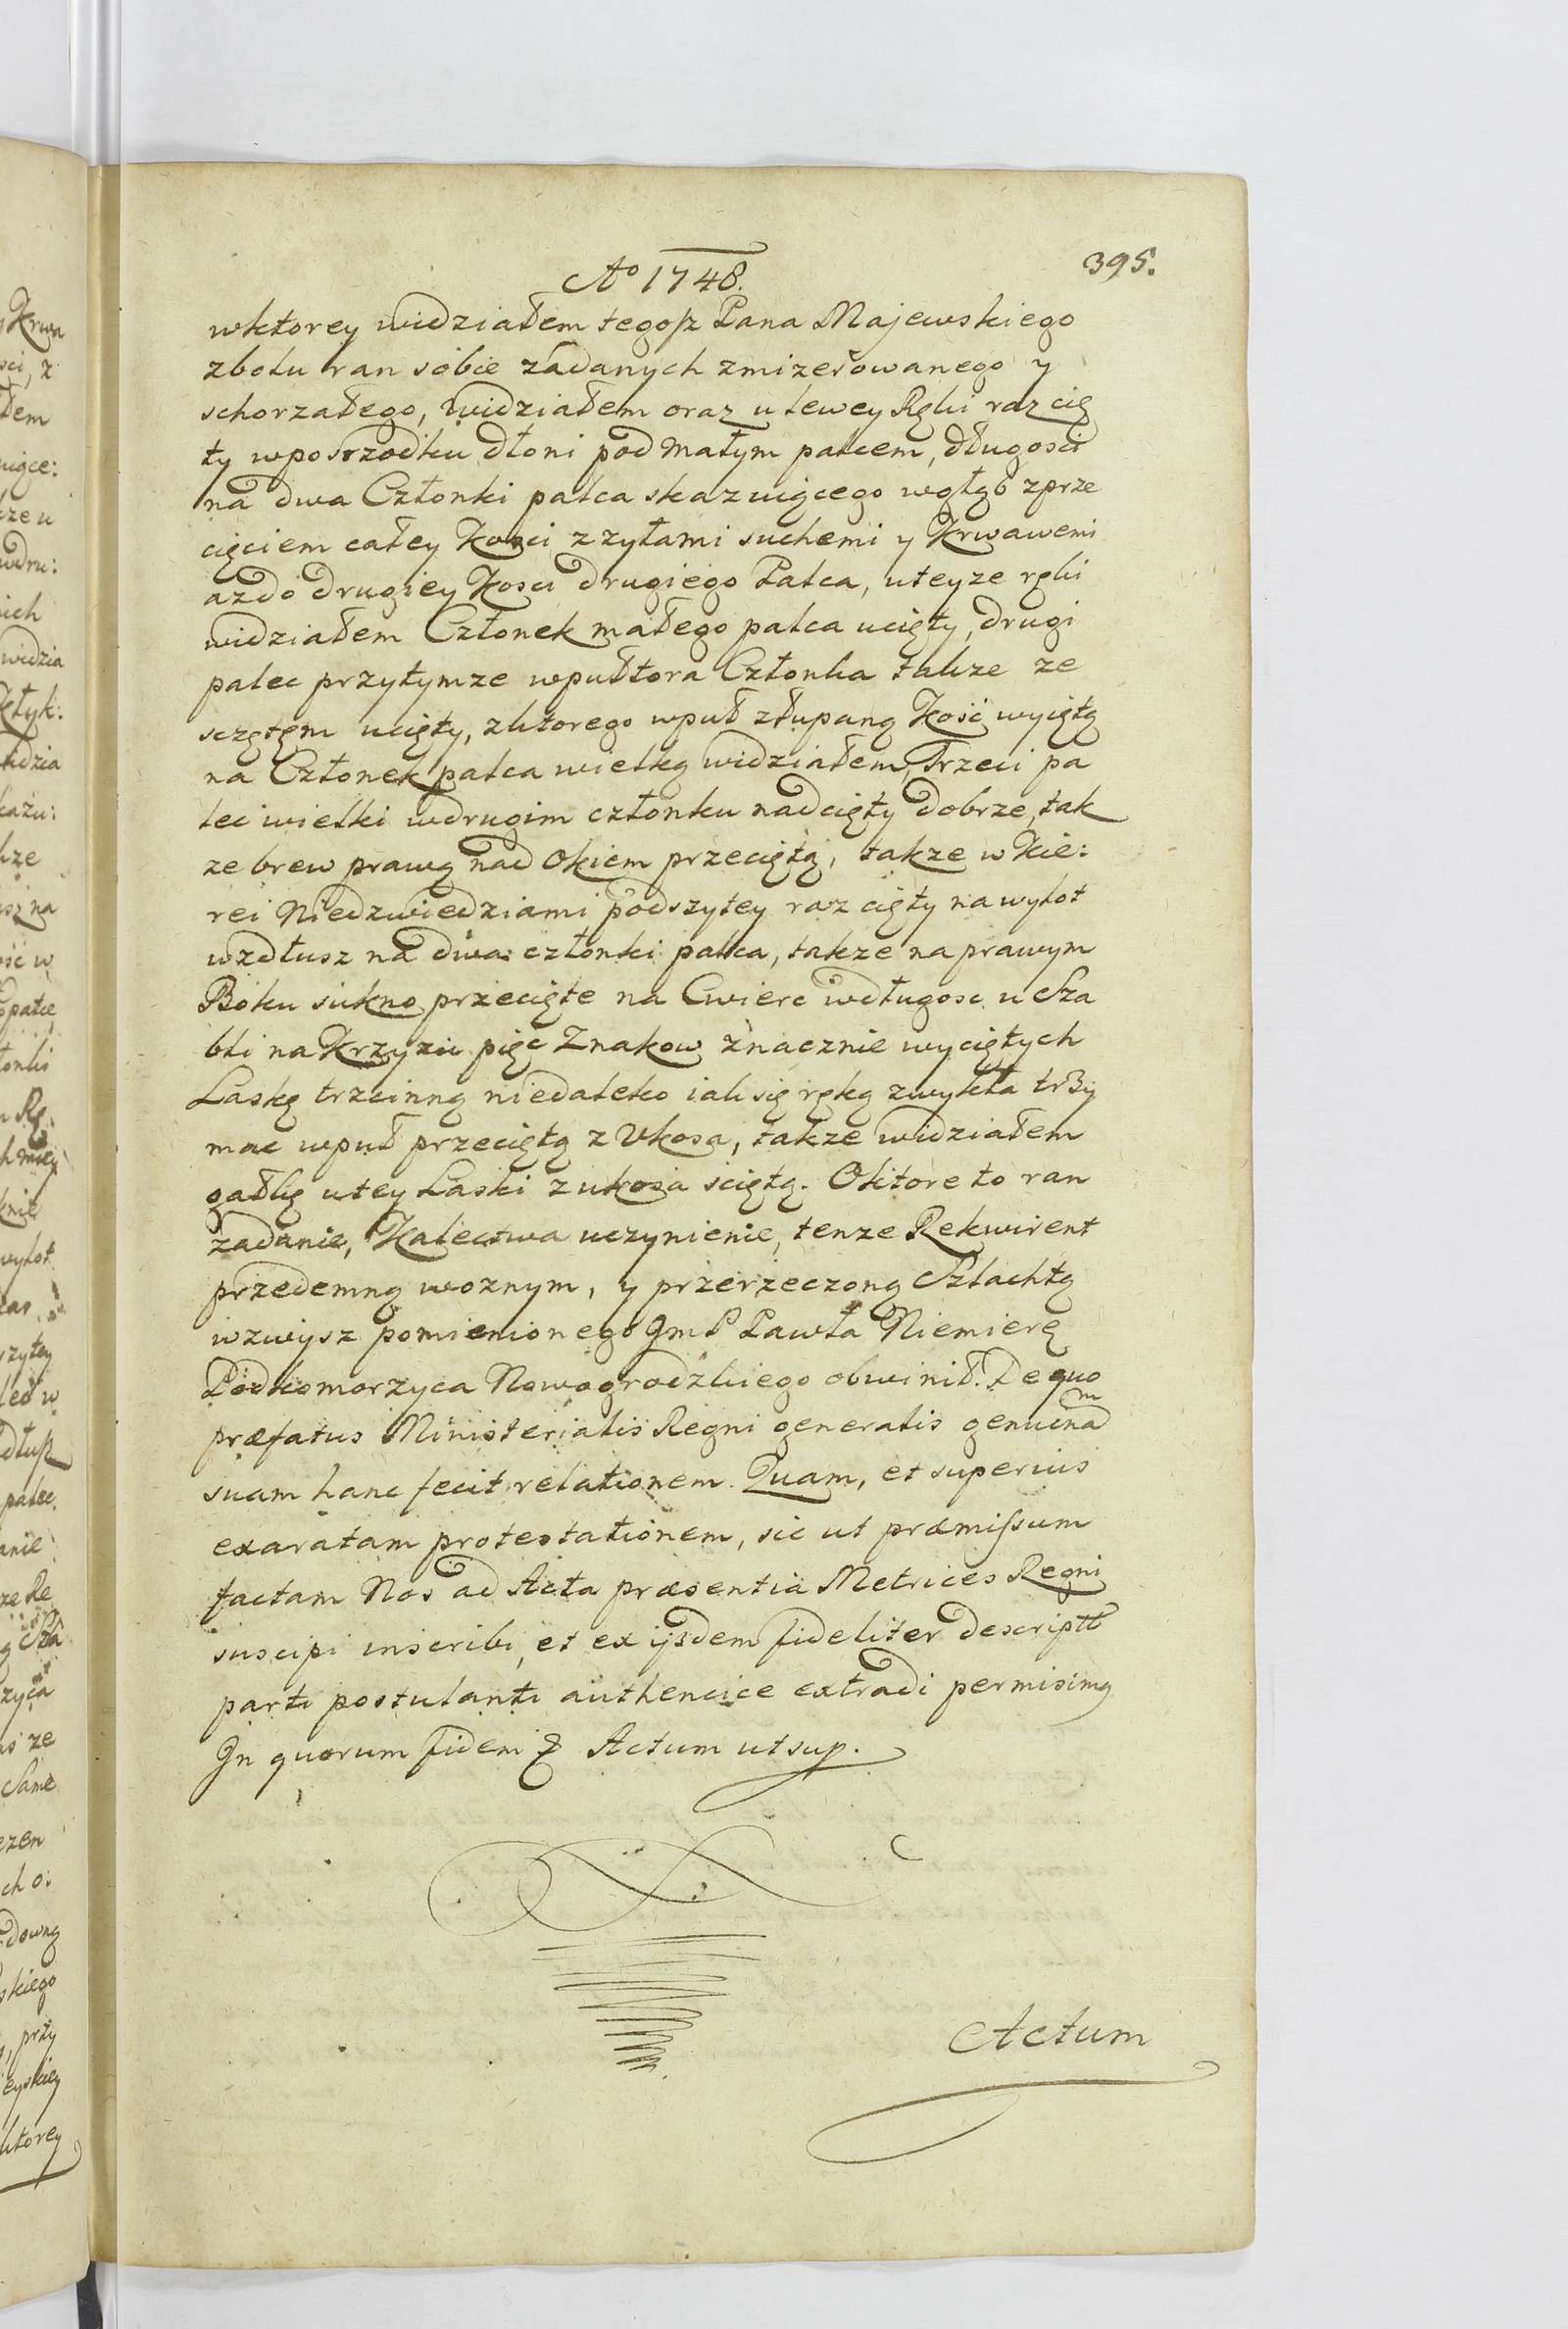 395.
Ao 1748.
wktorey widziałem tegoſz Pana Majewskiego
zbolu ran sobie zadanych zmizerowanego y
schorzałego, widziałem oraz u lewey Ręki raz cię
ty wposrzodku dłoni pod małym palcem, długosci
na dwa Członki palca skazuiącego wgłąb zprze
cięciem całey Kosci z zyłami suchemi y Krwawemi
azdo drugiey Kosci drugiego Palca, uteyze ręki
widziałem Członek małego palca ucięty, drugi
palec przytymze wpułtora Członka takze ze
sczętem ucięty, zktorego wpuł złupaną Kość wyiętą
na Członek palca wielką widziałem, Trzeci pa
lec wielki wdrugim członku nadcięty dobrze, tak
ze brew prawą nad Okiem przeciętą, takze w Kie:
rei Niedzwiedziami podszytey raz cięty na wylot
wzdłusz na dwa członki palca, takze na prawym
Boku sukno przecięte na Cwierc wdługosc u Sza
bli na Krzyzu pięc Znakow znacznie wyciętych
Laskę trzcinną niedaleko iak się ręką zwykła trzy
mac wpuł przeciętą z Ukosa, takze widziałem
gałkę utey Laski zukosa sciętą. Oktore to ran
zadanie, Kalectwa uczynienie, tenze Rekwirent
przedemną woznym, y przerzeczoną Szlachtą
wzwysz pomienionego JmP Pawła Niemierę
Podkomorzyca Nowogrodzkiego obwinił. De quo
præfatus Ministerialis Regni generalis genuinam
suam hanc fecit relationem. Quam, et superius
exaratam protestationem, sic ut præmiſsum
factam Nos ad Acta præsentia Metrices Regni
suscipi inscribi, et ex ijsdem fideliter descriptt
parti postulanti authencice extradi permisimg
In quorum fidem & Actum ut sup.
Actum